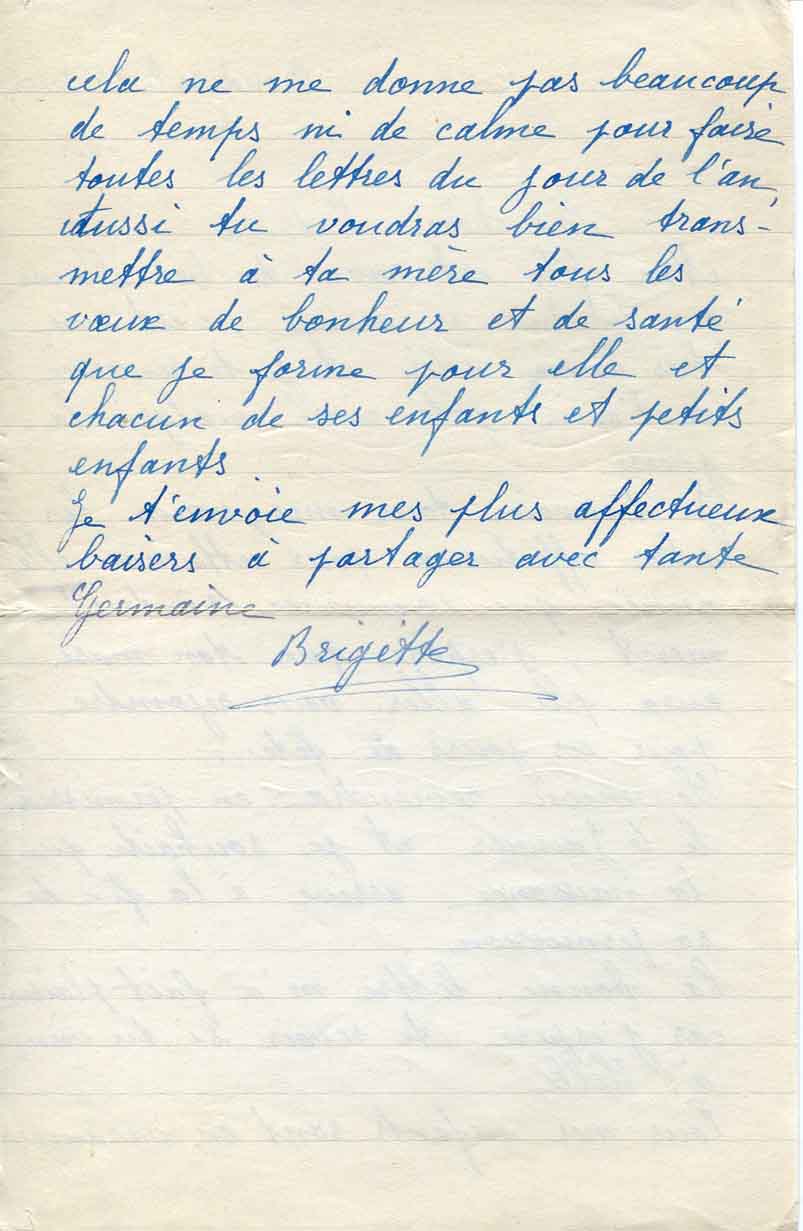 cela ne me donne pas beaucoup
de temps ni de calme pour faire
toutes les lettres du jour de l'an,
aussi tu voudras bien trans-
mettre à ta mère tous les
vœux de bonheur et de santé
que je forme pour elle et
chacun de ses enfants et petits
enfants.
Je t'envoie mes plus affectueux
baisers à partager avec tante
Germaine
Brigitte